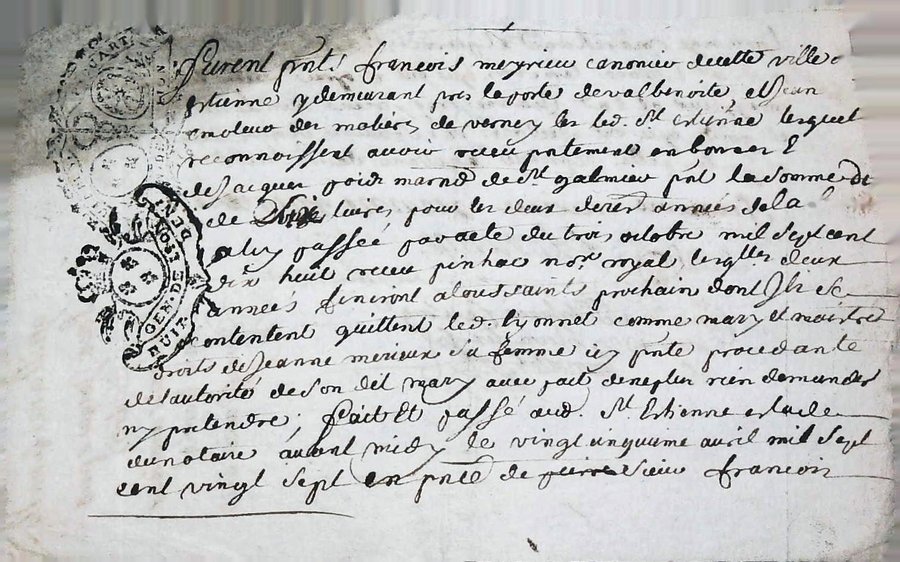 furent pnts françois meyrieu canonier de cette ville
estienne y demeurant pres la porte de valbenoite et Jean
des matières de verney les led. St. estienne lesquels
reconnoissent avoir receu pntement en
de Jacques marnd de St. galmier pnt la somme de
de livres pour les deux dere années de la
a luy passée par acte du trois octobre mil sept cent
dix huit receu pinhac nore royal lesqlles deux
années finiront a toussaints prochain dont Ils se
contentent quittent led. lyonnet comme mary et maistre
droits de Jeanne merieux sa femme icy pnte procedante
de l'autorité de son dit mary avec pact de ne plus rien demander
ny pretendre; fait Et passé aud. St. Estienne estude
du notaire avant midy le vingt cinquieme avril mil sept
cent vingt sept en pnce de pierre sieur françois
GEN. DE LYON
HUIT DE